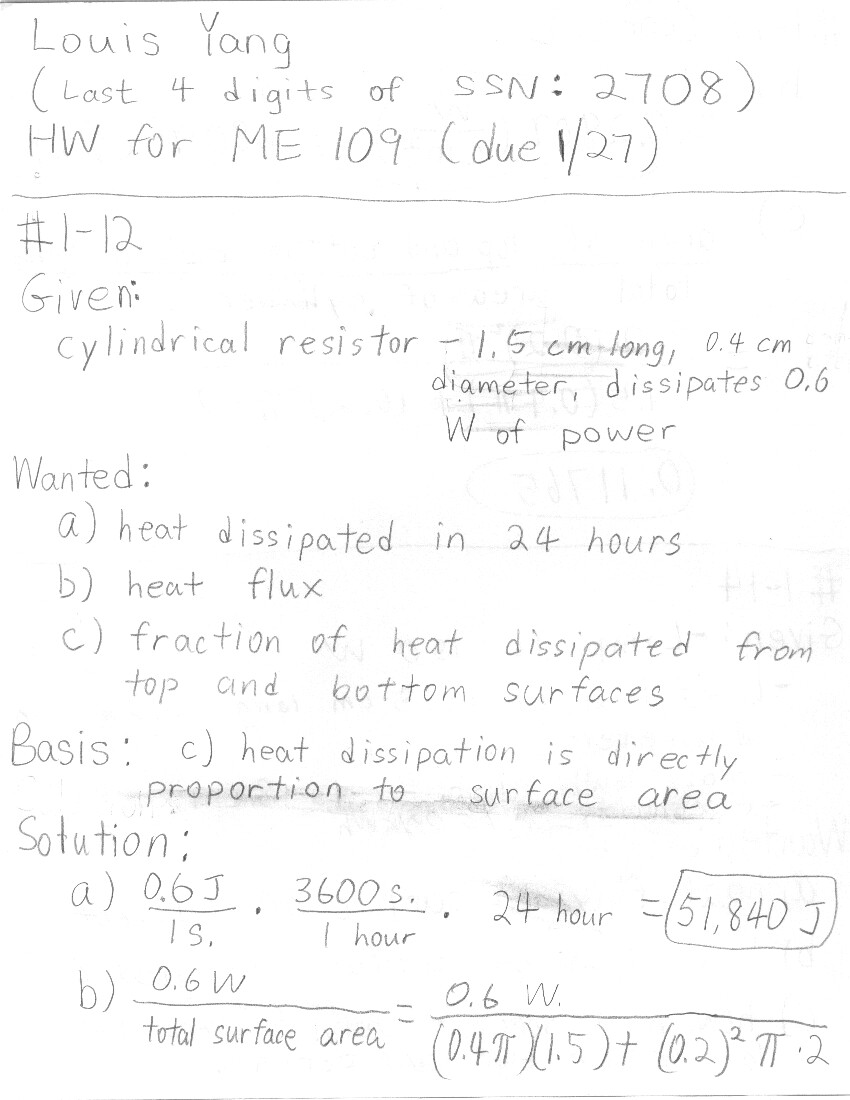 Louis Yang
(Last 4 digits of SSN: 2708)
HW for ME 109 (due 1/27)
#1-12
Given:
cylindrical resistor - 1.5 cm long, 0.4 cm
diameter, dissipates 0.6
W of power
Wanted:
a) heat dissipated in 24 hours
b) heat flux
c) fraction of heat dissipated from
top and bottom surfaces
Basis: c) heat dissipation is directly
proportion to surface area
Solution:
a) 0.6 J / 1 s. · 3600 s. / 1 hour · 24 hour = 51,840 J
b) 0.6 W / total surface area = 0.6 W. / (0.4π)(1.5) + (0.2)² π · 2